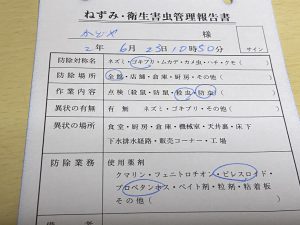 ねずみ・衛生害虫管理報告書
かどや 様
2年 6月 23日 10時50分 サイン
防除対称名 ネズミ・ゴキブリ・ムカデ・カメ虫・ハチ・クモ(
防除場所 全館・店舗・倉庫・厨房・その他(
作業内容 点検(殺鼠・防鼠・殺虫・防虫)
異状の有無 有 無 ネズミ・ゴキブリ・その他(
異状の場所 食堂・厨房・倉庫・機械室・天井裏・床下
下水排水経路・販売コーナー・工場
防除業務 使用薬剤
クマリン・フェニトロチオン・ピレスロイド・
プロペタンホス・ベイト剤・粒剤・粘着板
その他(
備考